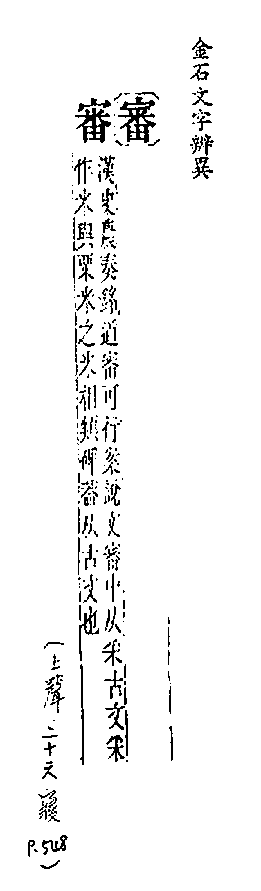 金石文字辨異
審
審
漢史晨奏銘道審可行案說文審中从釆古文釆
作米與粟米之米相類碑蓋从古文也
(上聲.二十六寢
P.548)